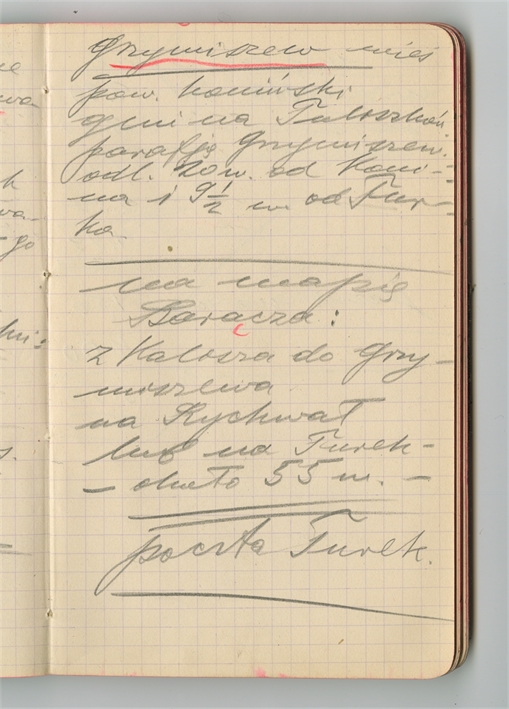 Grzymiszew wieś
pow. Koniński
gmina Tuliszków
parafję Grzymiszew.
odl. 20 w. od Koni-
na i 9 1/2 w. od Tur-
ka.
na mapie
Baracza:
z Kalisza do Grzy-
miszewa
na Rychwał
lub na Turek -
- około 55 w. -
poczta Turek.